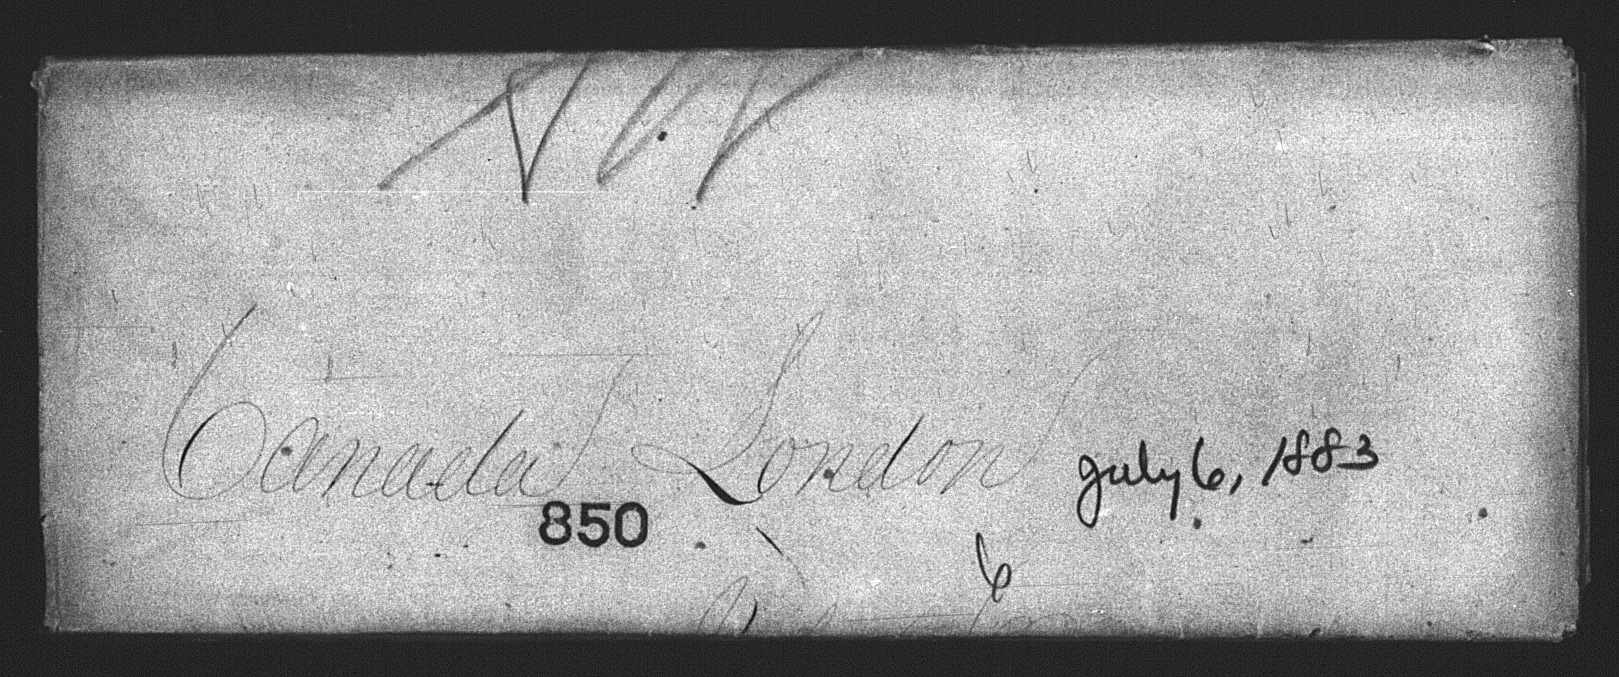 Canada London July 6, 1883
850
6